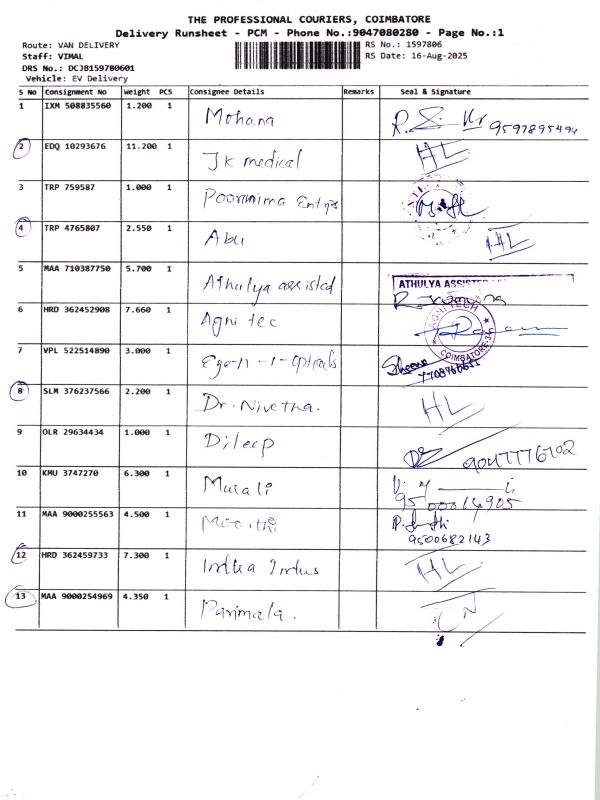 THE PROFESSIONAL COURIERS, COIMBATORE
Delivery Runsheet - PCM - Phone No.:9047080280 - Page No.:1
Route: VAN DELIVERY RS No.: 1597806
Staff: VIMAL RS Date: 16-Aug-2025
DRS No.: DCJB159780601
Vehicle: EV Delivery
S No Consignment No Weight PCS Consignee Details Remarks Seal & Signature
1 IXM 508835560 1.200 1 Mohana 9597895494
2 EDQ 10293676 11.200 1 Jk medical HL
3 TRP 759587 1.000 1 Poornima
4 TRP 4765807 2.550 1 Abu HL
5 MAA 710387750 5.700 1 Athulya assisted ATHULYA ASSISTED
6 HRD 362452908 7.660 1 Agni tec AGNI TECH COIMBATORE
7 VPL 522514890 3.000 1
8 SLM 376237566 2.200 1 Dr. Nivetha. HL
9 OLR 29634434 1.000 1 Dileep
10 KMU 3747270 6.300 1 Murali 9500014905
11 MAA 9000255563 4.500 1 9500682143
12 HRD 362459733 7.300 1 Indus HL
13 MAA 9000254969 4.350 1 Parimala.